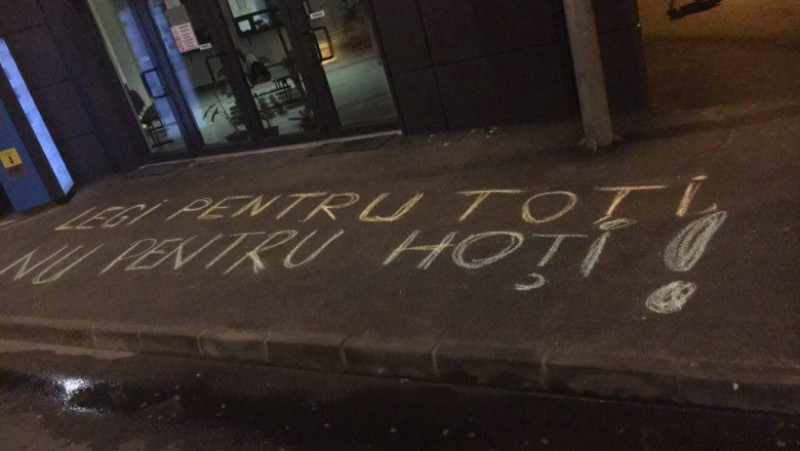 LEGI PENTRU TOȚI,
NU PENTRU HOȚI!